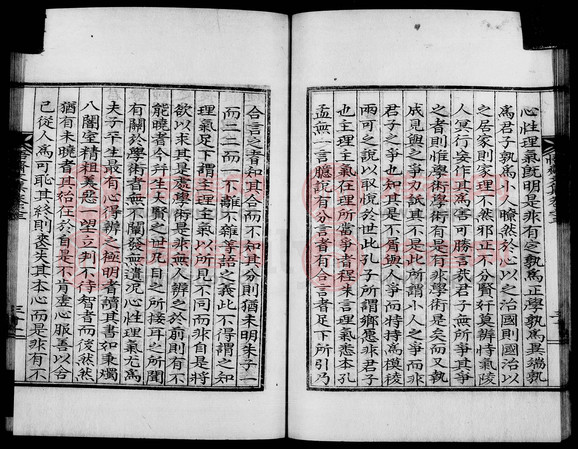 心性理氣旣明是非有定孰爲正學孰爲異端孰
爲君子孰爲小人瞭然於心以之治國則國治以
之居家則家理不然邪正不分賢奸莫辨恃氣陵
人冥行妄作其爲害可勝言哉君子無所爭其爭
之者則惟學術學術有是有非學術是矣而又執
成見與之爭力詆其不是此所謂小人之爭而非
君子之爭也知其是不肯與人爭而特持爲模稜
兩可之說以取悅於世此孔子所謂鄕愿非君子
也主理主氣在理所當爭者程朱言理氣悉本孔
孟無一言臆說有分言者有合言者足下所引乃
合言之者知其合而不知其分則猶未明朱子一
而二二而一不離不雜等語之義此不得謂之知
理氣足下謂主理主氣以所見不同而非自是將
欲以求其是處學術是非無人辨之於前則有不
能曉者今幷生大賢之世足目之所接耳之所聞
有關於學術者無不闡發無遺況心性理氣尤爲
夫子平生最有心得辨之極明者讀其書如秉燭
入闇室精粗美惡一望立判不待智者而後然然
猶有未曉者其始在於自是不肯虛心脈吾以合
已從人爲可恥其終則喪失其本心而是非有不